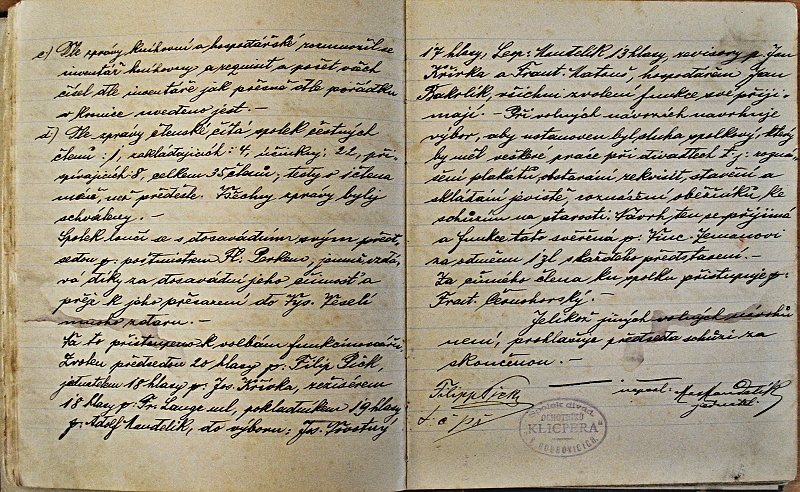 c) Dle zprávy knihovní a hospodářské rozmnožil se
inventář knihovny a requisit a počet všech
čísel dle inventáře jak přesně dle pořádku
v kronice uvedeno jest. —
d) Dle zprávy členské čítá spolek čestných
členů: 1, zakládajících: 4, účinkuj: 22, při-
spívajících 8, celkem 35 členů; tedy o 1 člena
méně, než předešle. Všechny zprávy byly
schváleny. —
Spolek loučí se s dosavádním svým před-
sedou p. poštmistrem Al. Perkem, jemuž vzdá-
vá díky za dosavádní jeho činnost a
přeje k jeho přesazení do Vys. Veselí
mnoho zdaru. —
Na to přistoupeno k volbám funkcionářů.
Zvolen předsedou 20 hlasy p. Filip Pick,
jednatelem 18 hlasy p. Jos. Křivka, režisérem
18 hlasy p. Fr. Lange ml, pokladníkem 19 hlasy
p. Adolf Mendelík, do výboru: Jos. Novotný
17 hlasy, Leop. Mendelík 13 hlasy, revisory p. Jan
Křivka a Frant. Matouš, hospodářem Jan
Bakrlík, všichni zvolení funkce své přijí-
mají. — Při volných návrzích navrhuje
výbor, aby ustanoven byl sluha spolkový, který
by měl veškeré práce při divadlech t. j. rozná-
šení plakátů, obstarání rekvisit, stavění a
skládání jeviště, roznášení oběžníků ke
schůzím na starosti. Návrh ten se přijímá
a funkce tato svěřena p. Vinc. Zemanovi
za odměnu 1 zl. s každého představení. —
Za činného člena ku spolku přistupuje p.
Frant. Černohorský. —
Jelikož jiných volných návrhů
není, prohlašuje předseda schůzi za
skončenou. —
Filip Pick
t. č. př.
zapsal: Mendelík
jednatel
Spolek divad.
OCHOTNÍKŮ
„KLICPERA“